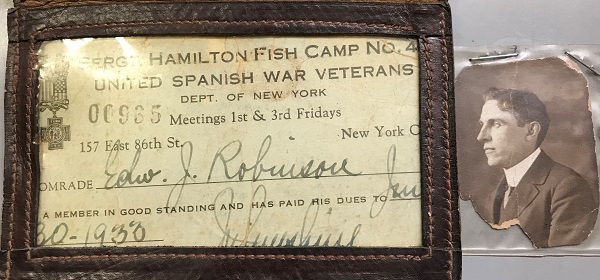 SERGT. HAMILTON FISH CAMP No. 4
UNITED SPANISH WAR VETERANS
DEPT. OF NEW YORK
00985 Meetings 1st & 3rd Fridays
157 East 86th St. New York C
OMRADE Edw. J. Robinson
A MEMBER IN GOOD STANDING AND HAS PAID HIS DUES TO Jun
30-1938